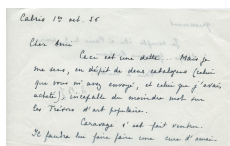 Cabris 1er oct. 56
Cher Ami
Ceci est une dette. Mais je
me sens, en dépit de deux catalogues (celui
que vous m'avez envoyé, et celui que j'avais
acheté), incapable du moindre mot sur
les Trésors d'art populaire.
Caravage s'est fait
Il faudra lui faire faire une cure d'